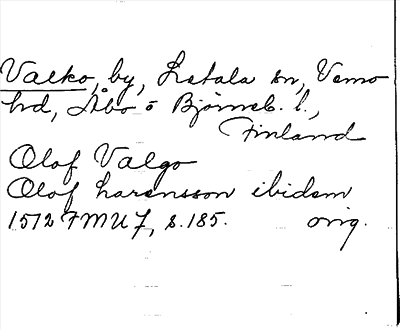 Valko, by, Letala sn, Vemo
hd, Åbo o Björneb. l.,
Finland
Olof Valgo
Olof Larensson ibidem
1572 FMU 7, s. 185. orig.